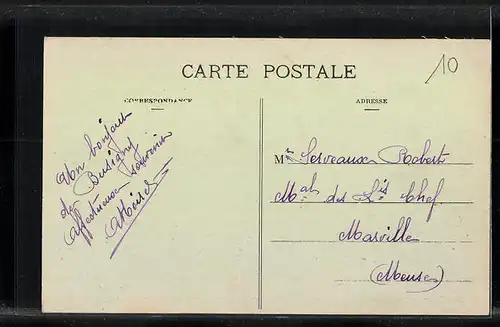 CARTE POSTALE
10
CORRESPONDANCE
ADRESSE
Un bonjour
de Busigny
affectueux souvenir
Mr Serveaux Robert
Mal des Lis Chef
Marville
(Meuse)